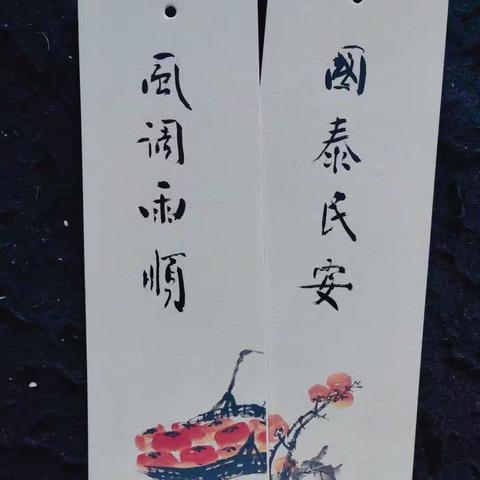 國泰民安
風调雨順